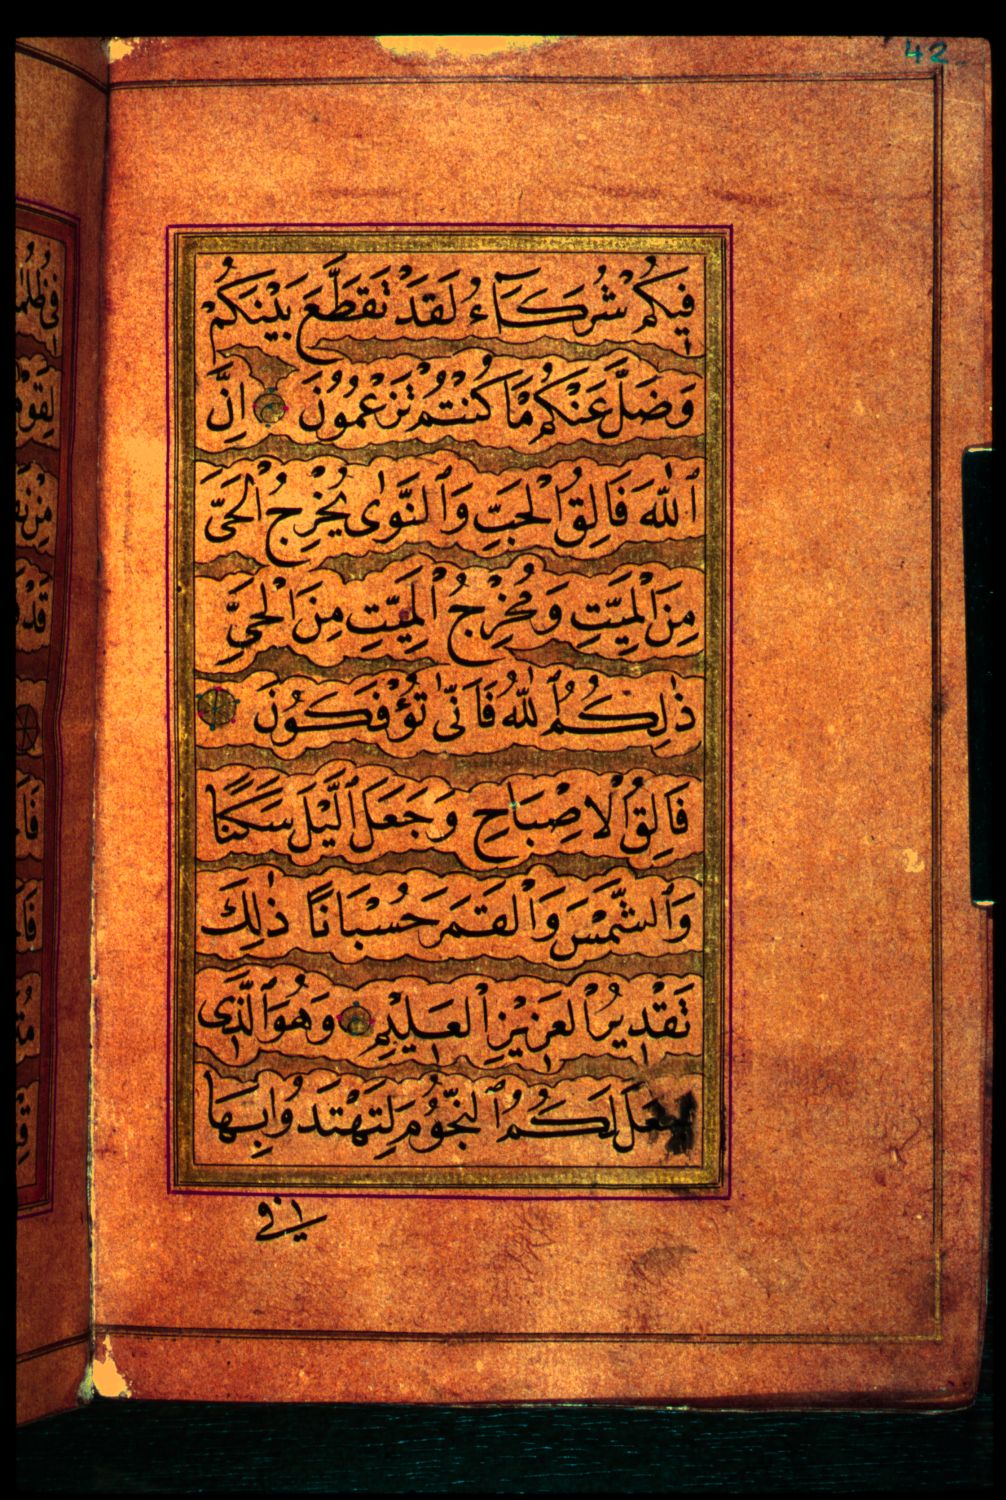 42
فِيكُمْ شُرَكَآءُ لَقَدْ تَقَطَّعَ بَيْنَكُمْ
وَضَلَّ عَنْكُمْ مَا كُنْتُمْ تَزْعُمُونَ اِنَّ
ٱللّٰهَ فَالِقُ الْحَبِّ وَٱلنَّوٰى يُخْرِجُ الْحَىَّ
مِنَ الْمَيِّتِ وَمُخْرِجُ الْمَيِّتِ مِنَ الْحَىِّ
ذٰلِكُمُ ٱللّٰهُ فَاَنّٰى تُؤْفَكُونَ
فَالِقُ الْاِصْبَاحِ وَجَعَلَ ٱلَّيْلَ سَكَنًا
وَٱلشَّمْسَ وَالْقَمَرَ حُسْبَانًا ذٰلِكَ
تَقْدِيرُ الْعَزِيزِ الْعَلِيمِ وَهُوَ ٱلَّذِى
جَعَلَ لَكُمُ ٱلنُّجُومَ لِتَهْتَدُوا بِهَا
فِى